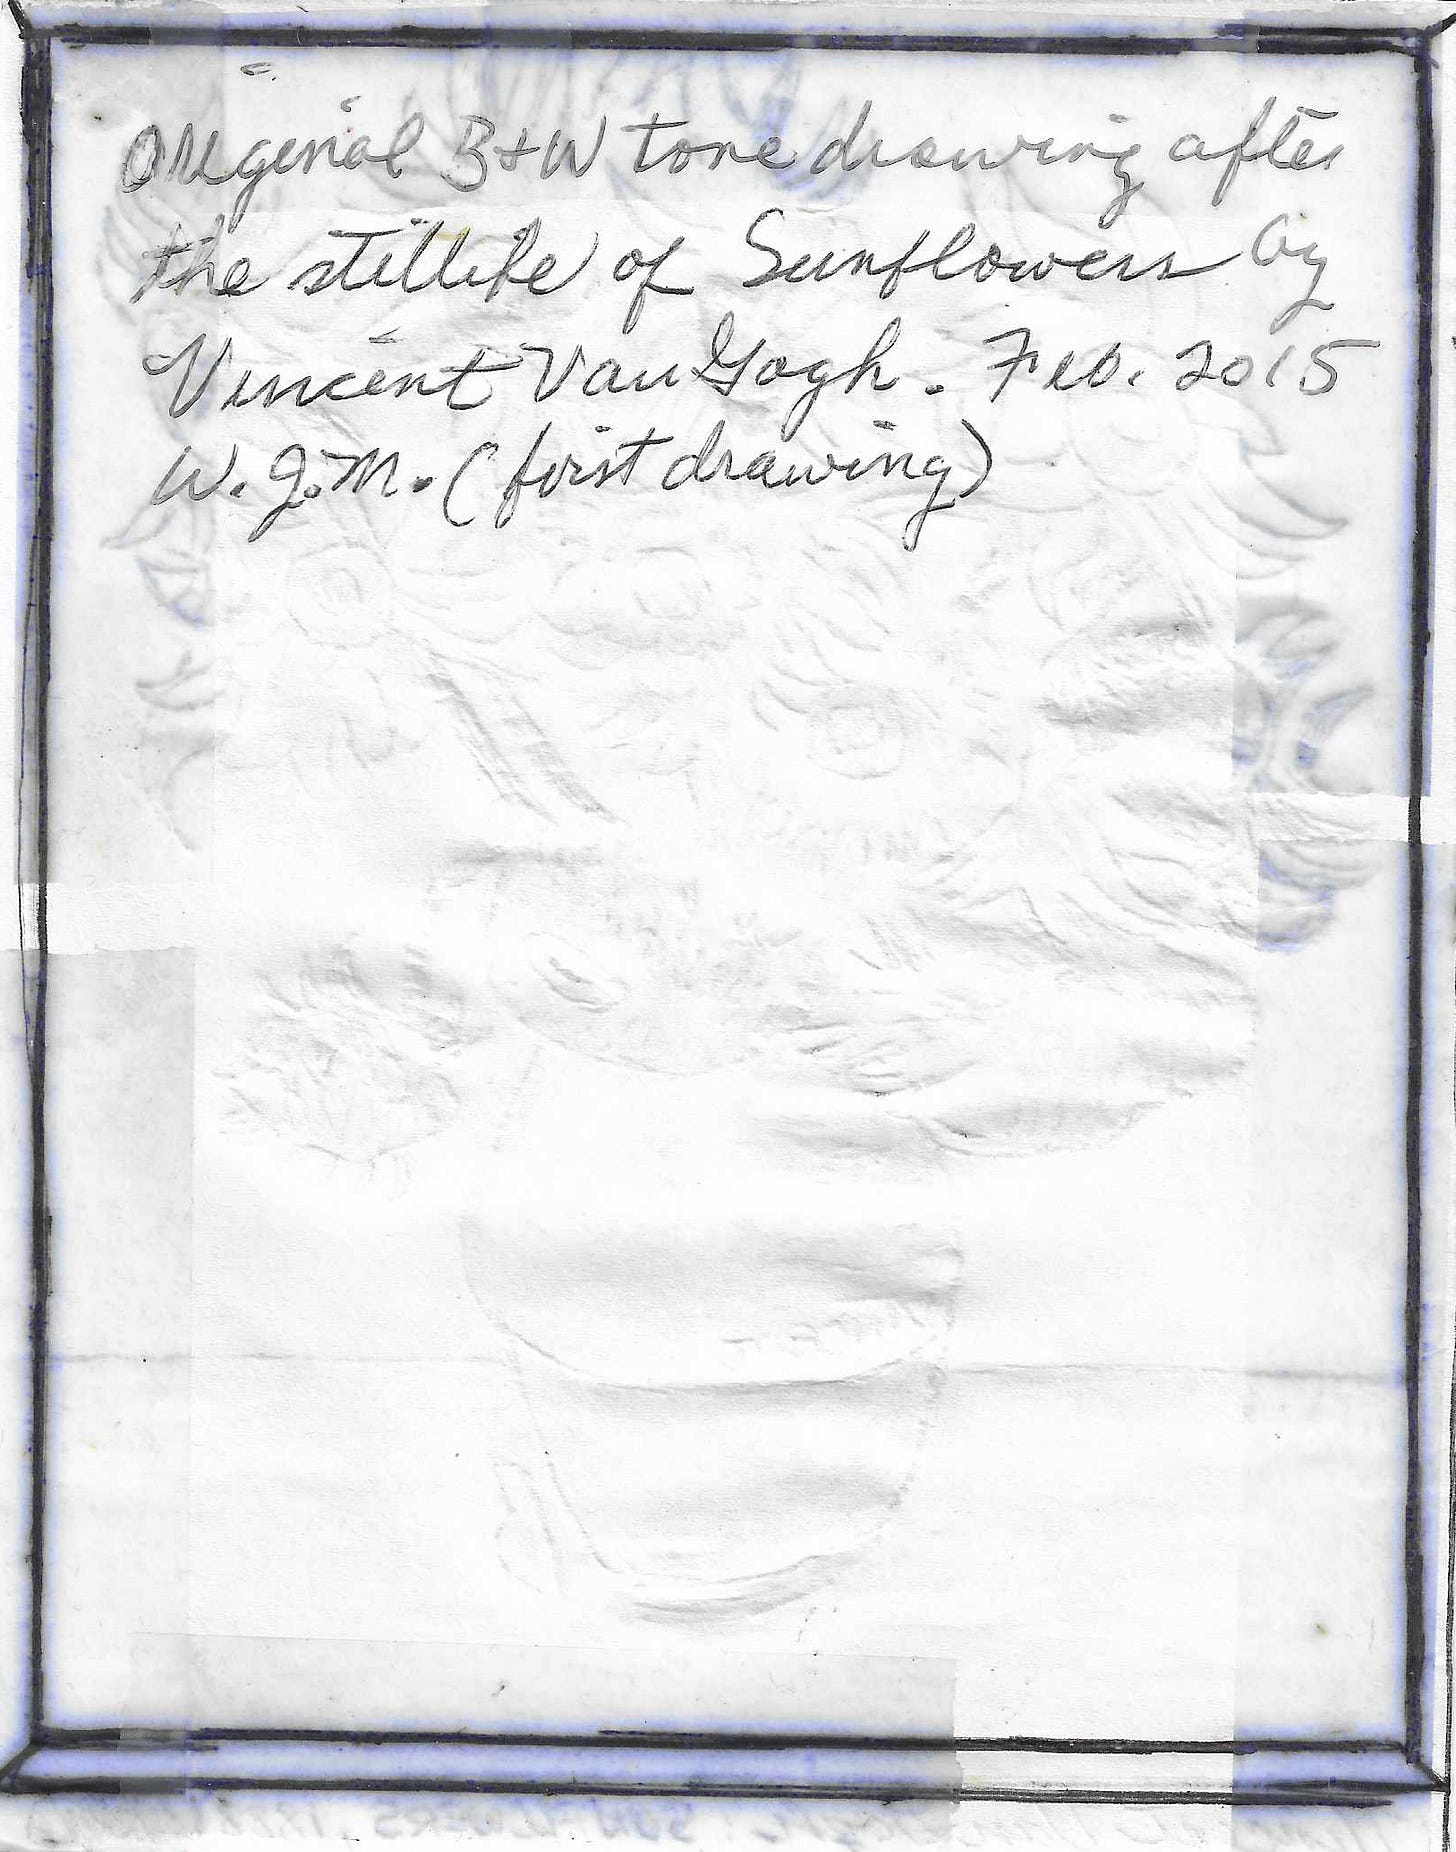 Original B+W tone drawing after
the stillife of Sunflowers by
Vincent Van Gogh. Feb. 2015
W.J.M. (first drawing)
SUNFLOWERS